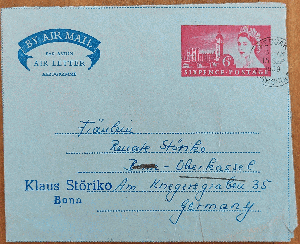 BY AIR MAIL
PAR AVION
AIR LETTER
AEROGRAMME
6D
SIXPENCE·POSTAGE
Fräulein
Renate Störiko
Oberkassel
Klaus Störiko Am Kriegersgraben 35
Bonn
Germany